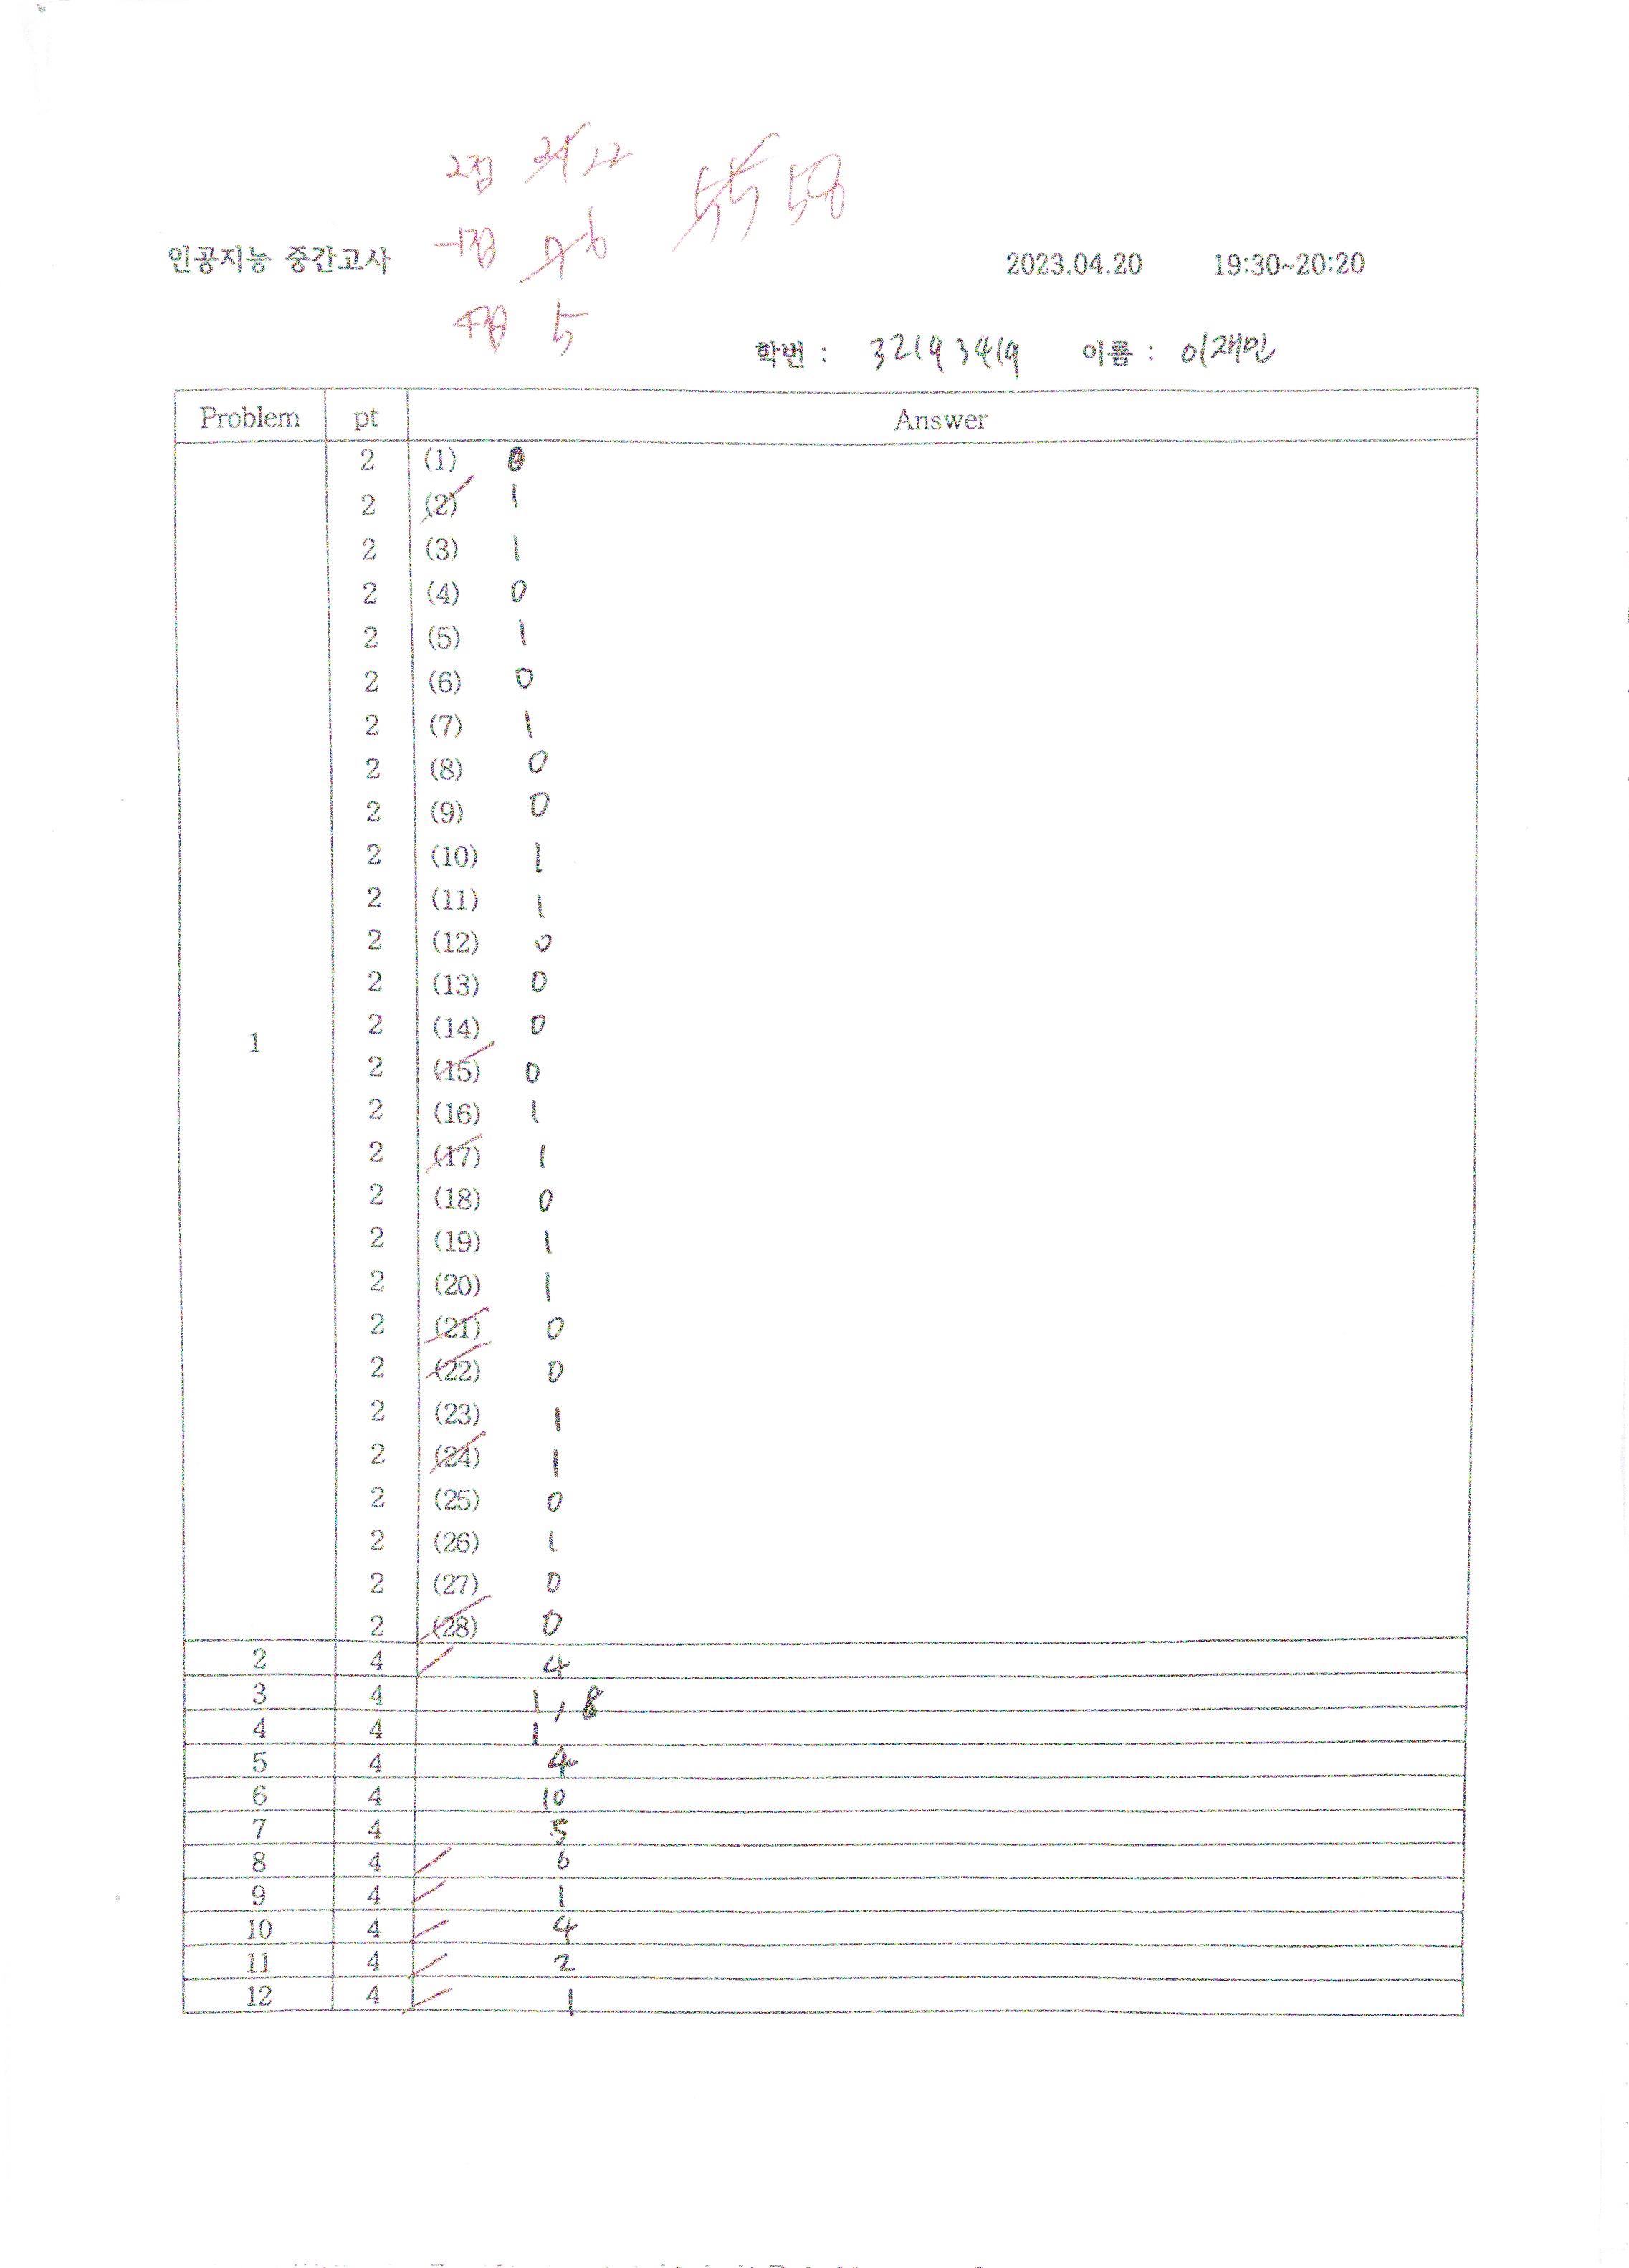 2점 21 22 55 58
인공지능 중간고사 -1점 7 6 2023.04.20 19:30~20:20
4점 5
학번 : 32193419 이름 : 이재민
Problem pt Answer
2 (1) 0
2 (2) 1
2 (3) 1
2 (4) 0
2 (5) 1
2 (6) 0
2 (7) 1
2 (8) 0
2 (9) 0
2 (10) 1
2 (11) 1
2 (12) 0
2 (13) 0
2 (14) 0
1
2 (15) 0
2 (16) 1
2 (17) 1
2 (18) 0
2 (19) 1
2 (20) 1
2 (21) 0
2 (22) 0
2 (23) 1
2 (24) 1
2 (25) 0
2 (26) 1
2 (27) 0
2 (28) 0
2 4 4
3 4 1, 8
4 4 1
5 4 4
6 4 10
7 4 5
8 4 6
9 4 1
10 4 4
11 4 2
12 4 1